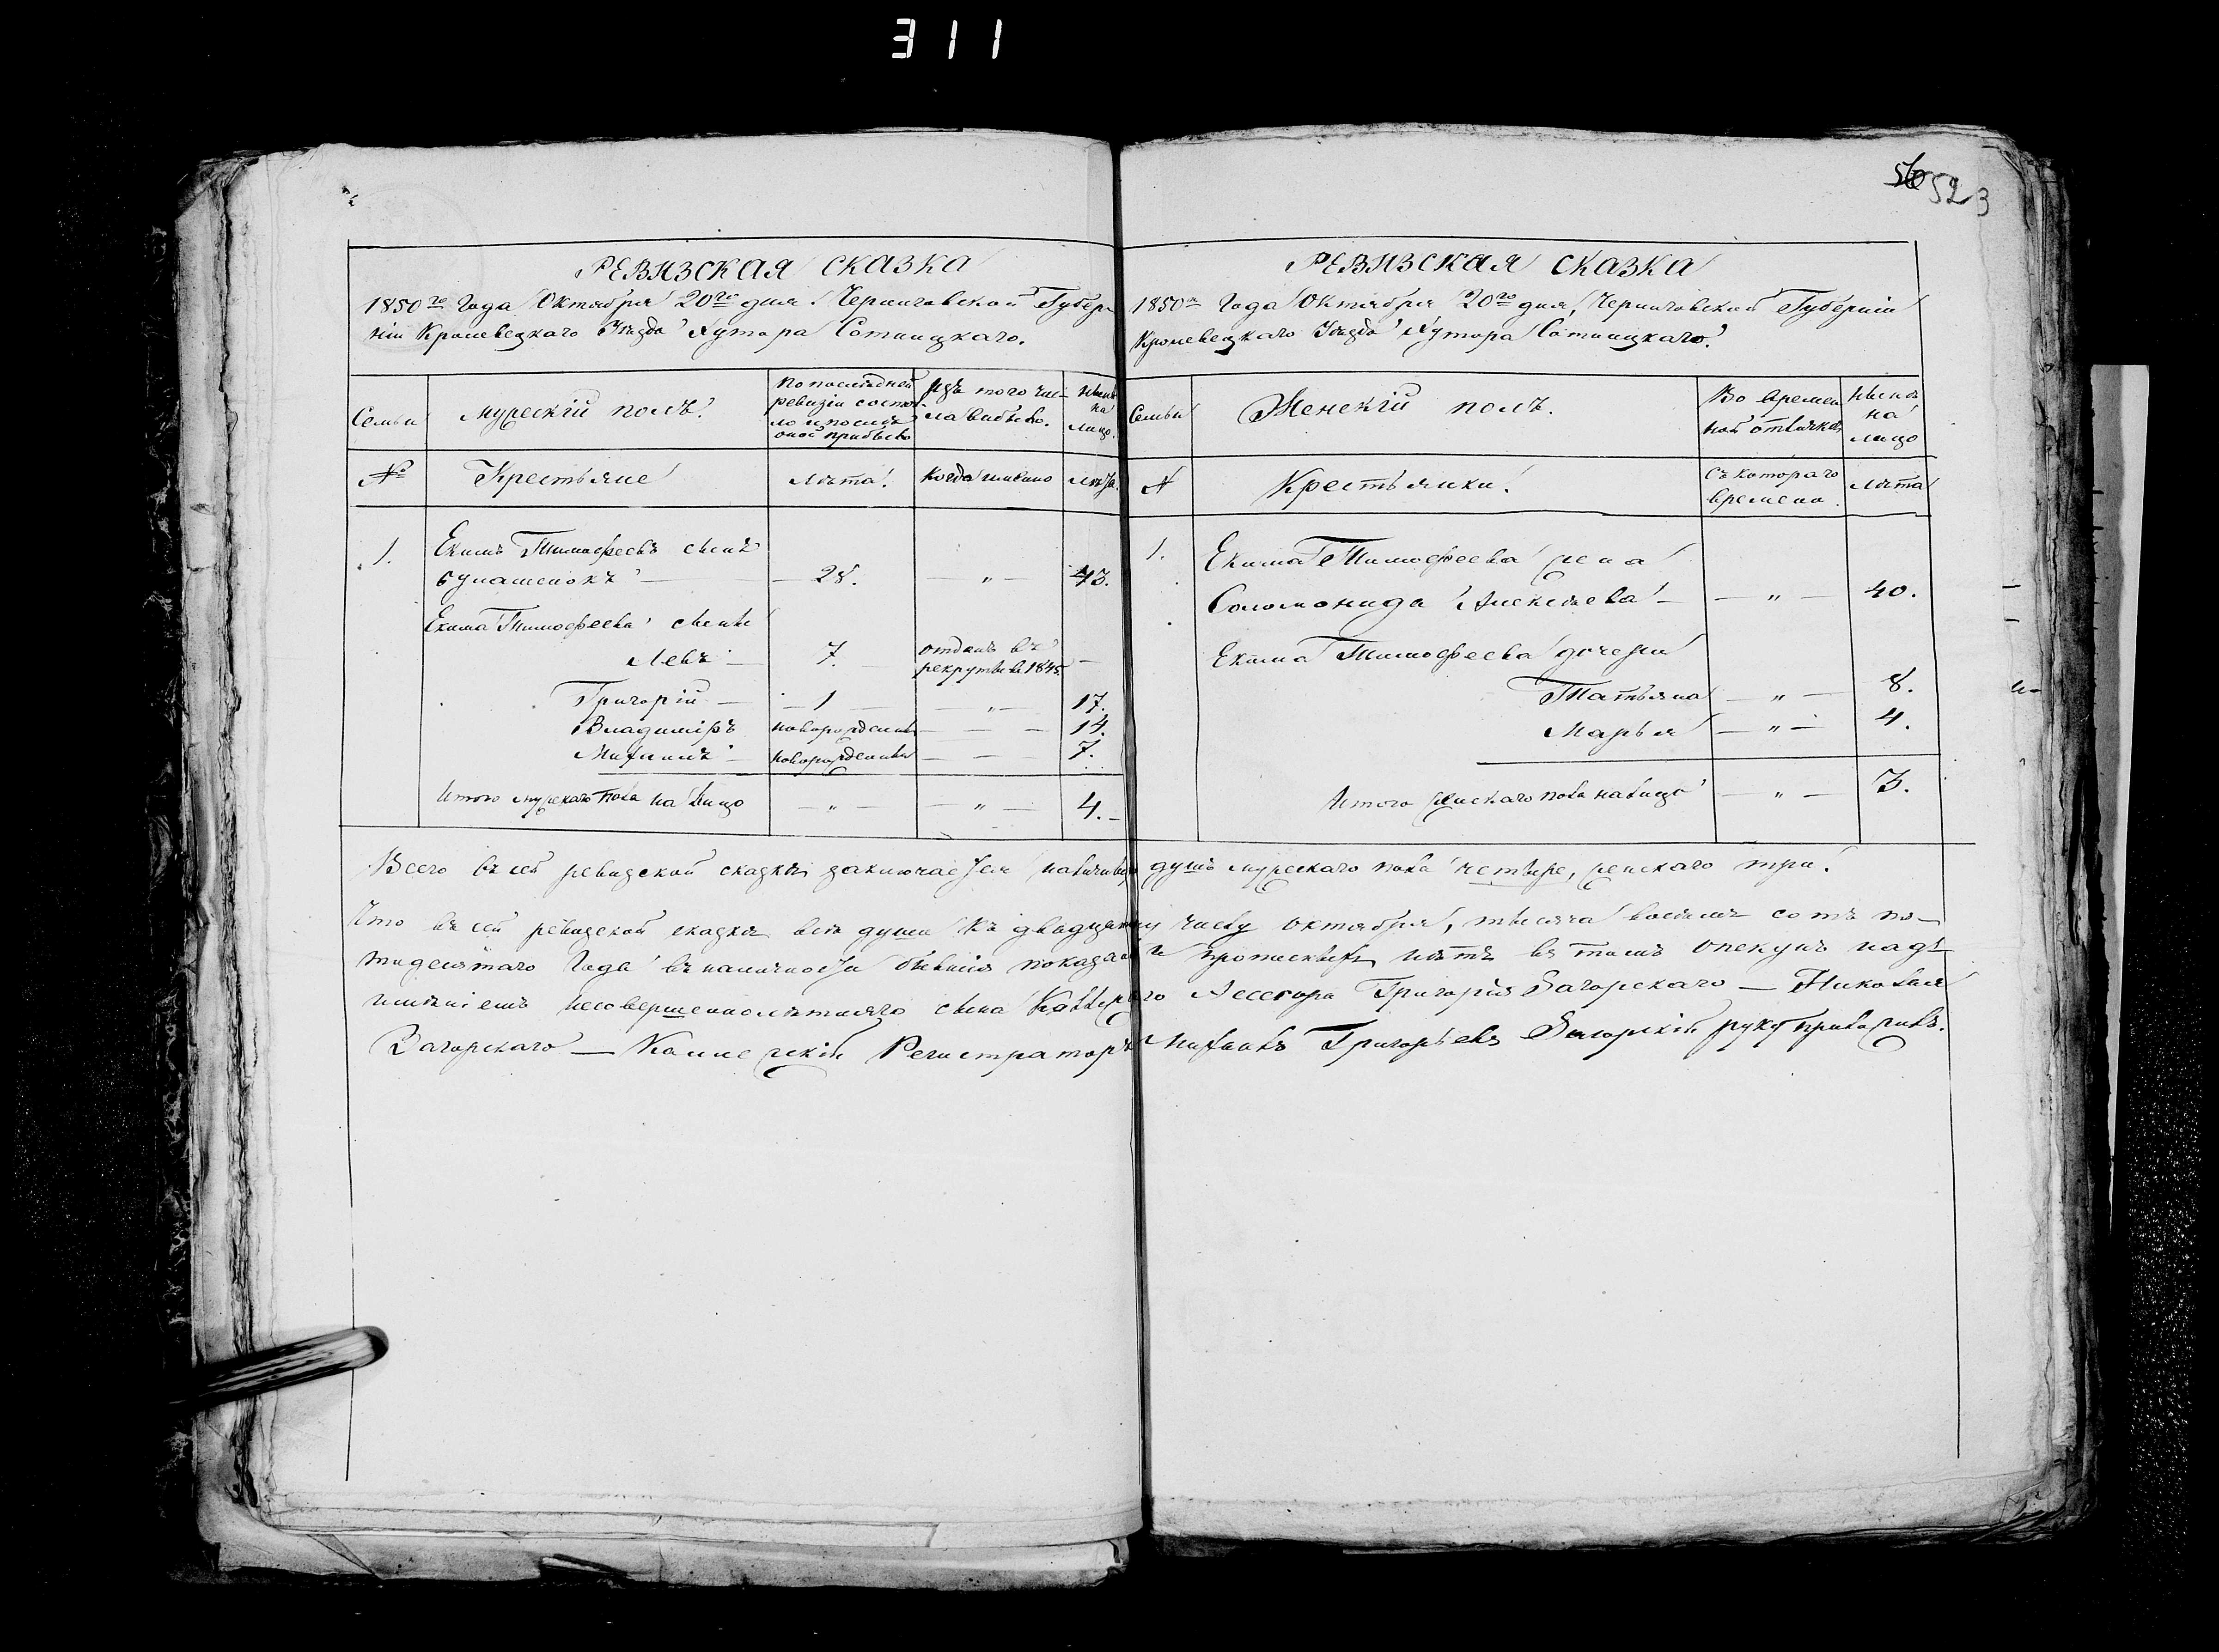 311
56 523
РЕВИЗСКАЯ СКАЗКА
1850го Года Октября 20го дня Черниговской Губер
ніи Кролевецкаго Уѣзда Хутора Сотницкаго.
Семьи
Мужескій полъ.
По последней
ревизіи состоя
ло и после
оной прибыло
Изъ того чис-
ла выбыло.
Ныне
на
лицо.
№
Крестьяне
Лѣта.
Когда имянно
Лѣта.
1.
Екимъ Тимофеевъ сынъ
28.
"
43.
Екима Тимофеева сыны
Левъ
7.
отданъ въ
рекруты въ 1845.
Григорій
1
"
17.
Владиміръ
новорожденны
14.
Михаилъ
новорожденны
7.
Итого мужескаго пола на лицо
"
"
4.
РЕВИЗСКАЯ СКАЗКА
1850го Года Октября 20го дня, Черниговской Губерніи
Кролевецкаго Уѣзда Хутора Сотницкаго.
Семьи
Женскій полъ.
Во времен
ной отлучкѣ
Ныне
на
лицо
№
Крестьянки.
Съ котораго
времени.
Лѣта
1.
Екима Тимофеева жена
Соломонида Алексѣева
"
40.
Екима Тимофеева дочери
Татьяна
"
8.
Марья
"
4.
Итого женскаго пола налицо
"
3.
Всего въ сей ревизской сказкѣ заключается наличныхъ душъ мужескаго пола четыре, женскаго три.
Что въ сей ревизской сказкѣ все души къ двадцатому числу октября, тысяча восемь сотъ пя-
тидесятаго Года въ наличности бывшія показаны и прописныхъ нѣтъ въ томъ опекунъ надъ
имѣніемъ несовершеннолѣтняго сына Ассесора Григорія Загорскаго — Николая
Загорскаго — Коллежскій Регистраторъ Михаилъ Григорьевъ Загорскій руку приложилъ.